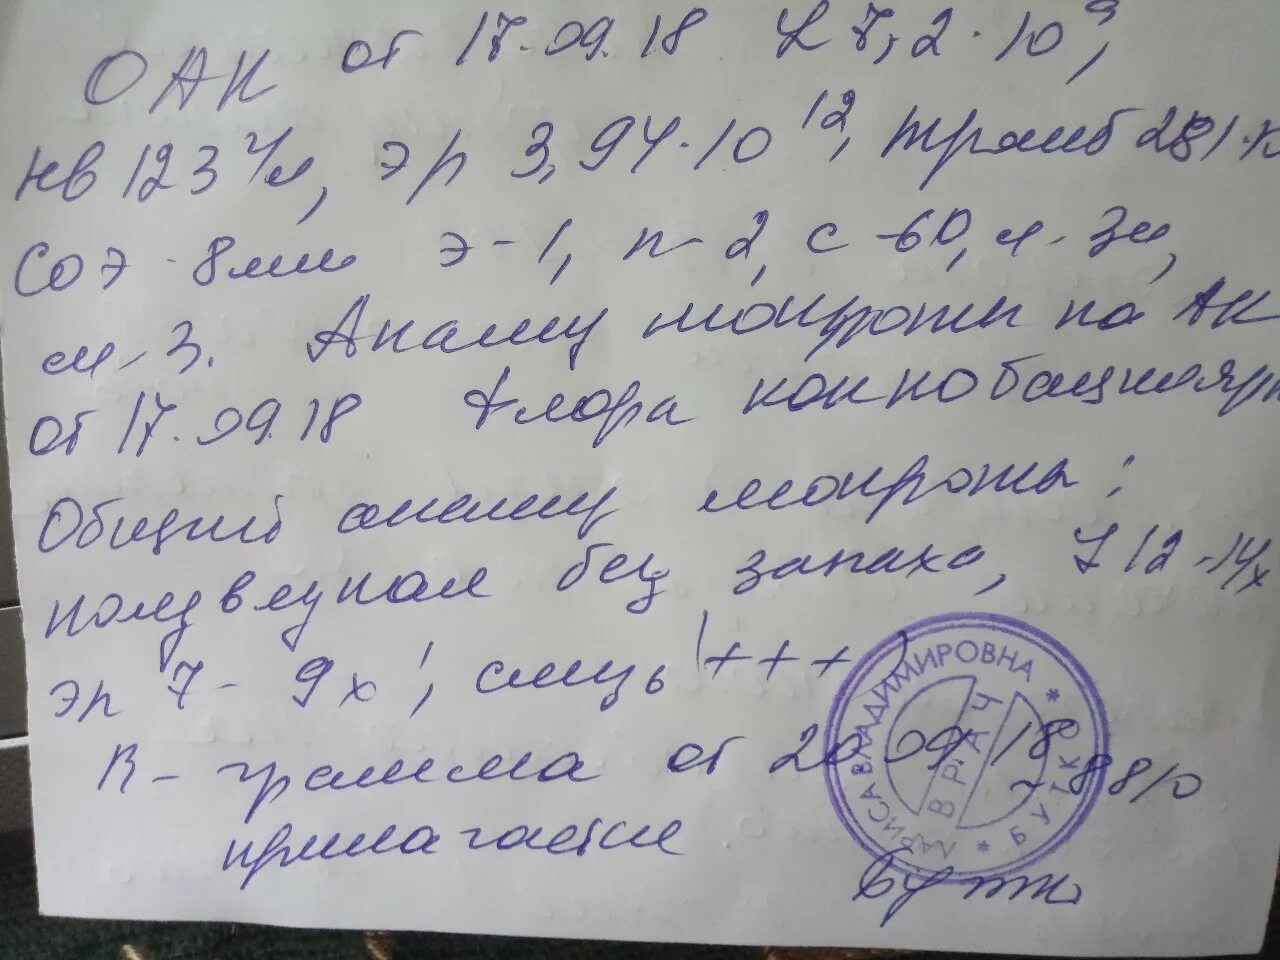 ОАК от 17.09.18 L 7,2·10⁹,
Нв 123 г/л, эр 3,94·10¹², тромб 281·10
СОЭ -8мм э-1, п-2, с-60, л-34,
м-3. Анализ мокроты на АК
от 17.09.18 флора коккобациллярн
Общий анализ мокроты:
полувязкая без запаха, L 12-14х
эр 7-9х', слизь (+++)
R-грамма от 20.09.18 - 88/0
прилагается
ЛАРИСА ВЛАДИМИРОВНА * БУТКО *
ВРАЧ